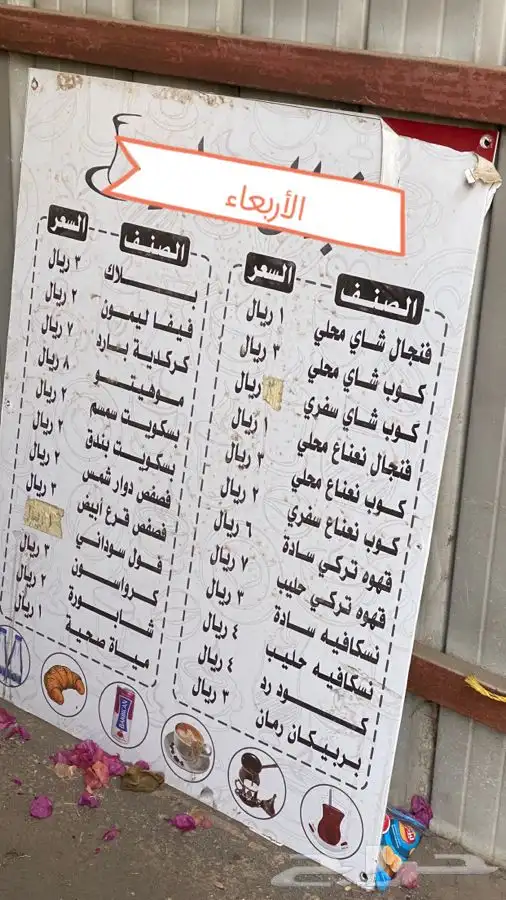 الأربعاء
الصنف السعر
فنجال شاي محلي ١ ريال
كوب شاي محلي ٣ ريال
كوب شاي سفري ريال
فنجال نعناع محلي ١ ريال
كوب نعناع محلي ٣ ريال
كوب نعناع سفري ٢ ريال
قهوه تركي سادة ٦ ريال
قهوه تركي حليب ٧ ريال
نسكافيه سادة ٣ ريال
نسكافيه حليب ٤ ريال
كود رد ٤ ريال
بربيكان رمان ٣ ريال
الصنف السعر
بلاك ٣ ريال
فيفا ليمون ٢ ريال
كركدية بارد ٧ ريال
موهيتو ٨ ريال
بسكويت سمسم ٢ ريال
بسكويت بندق ٢ ريال
فصفص دوار شمس ٢ ريال
فصفص قرع أبيض ٣ ريال
فول سوداني ريال
كرواسون ٣ ريال
شابورة ٢ ريال
مياة صحية ١ ريال
حراج